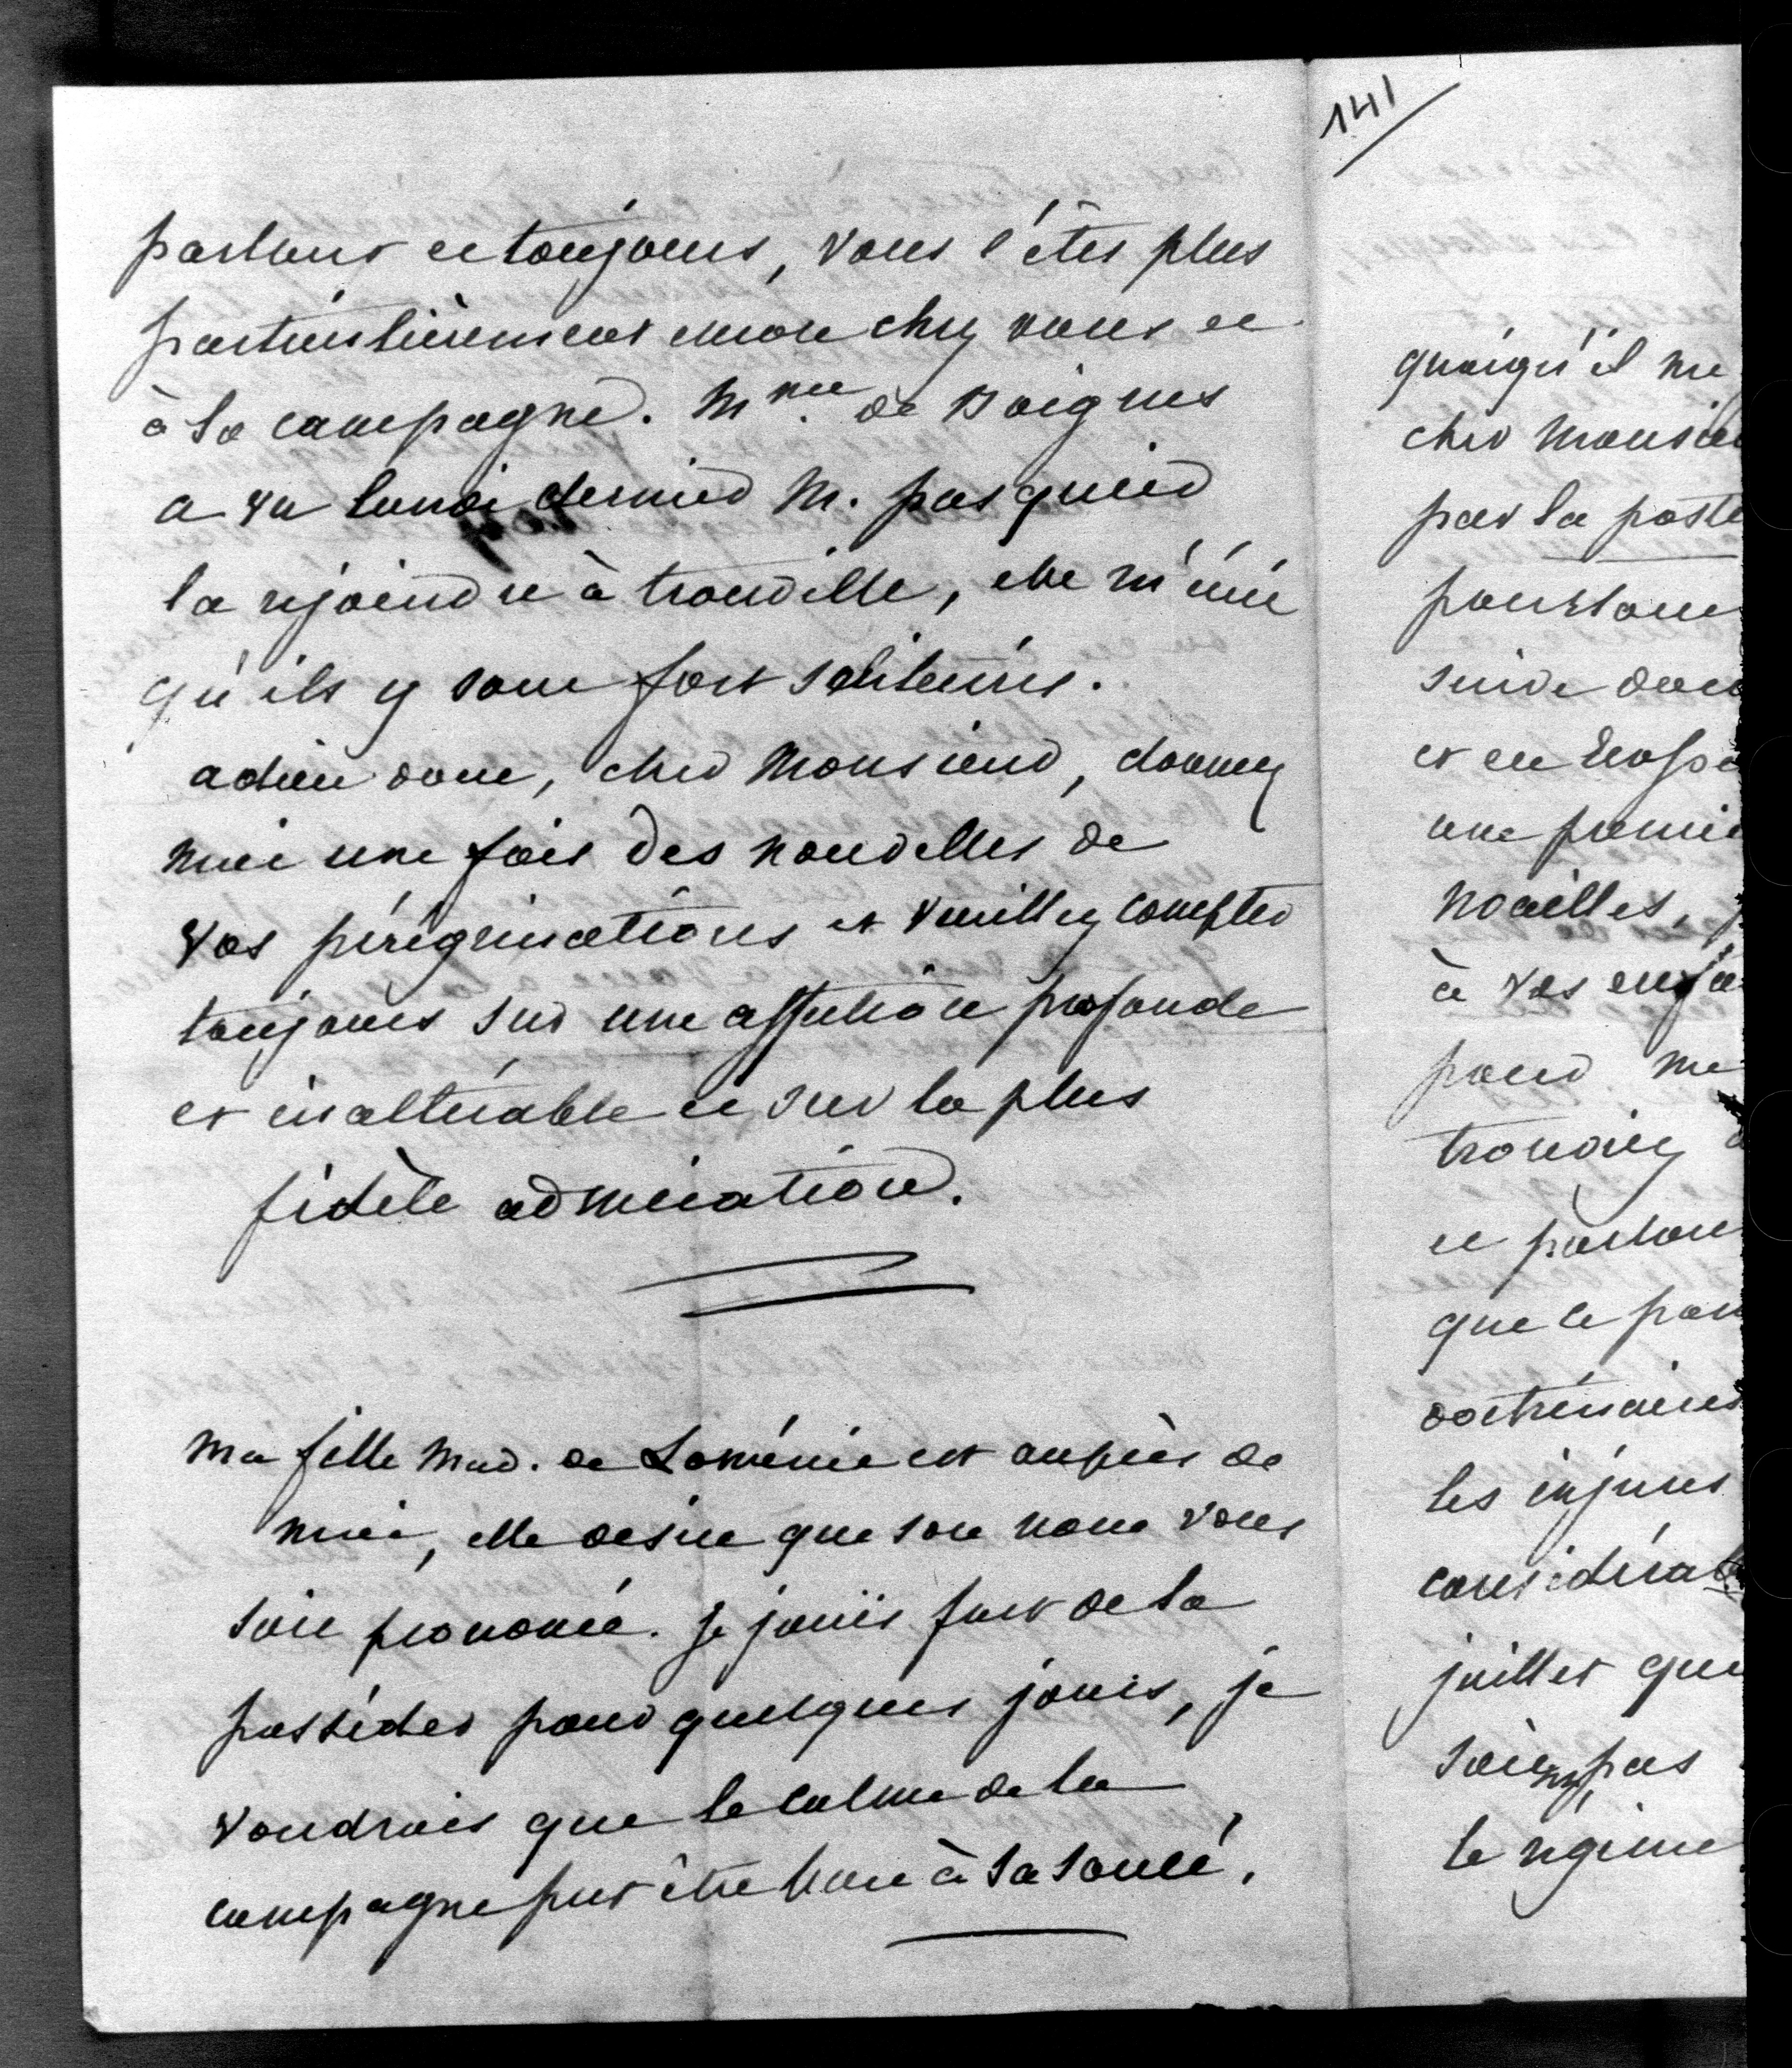 partout et toujours, vous l'êtes plus
particulièrement encore chez vous et
à la campagne. Mme de Boigne
a vu lundi dernier M. pasquier
la rejoindre à trouville, elle m'écrit
qu'ils y sont fort solitaires.
adieu donc, cher Monsieur, donnez
moi une fois des nouvelles de
vos pérégrinations et veuillez compter
toujours sur une affection profonde
et inaltérable et sur la plus
fidèle admiration.
ma fille Mad. de Loménie est auprès de
moi, elle desire que son nom vous
soit prononcé. Je jouis fort de la
posséder pour quelques jours, je
voudrais que le calme de la
campagne put être bon à sa santé.
141
quoiqu'il me
cher Monsie
par la poste
pourtant
suive
et en
une premiè
Noailles,
à vos enfa
pour me
trouviez
et partout
que le
doctrinaires
les injures
considérab
juillet que
soient pas
le régime